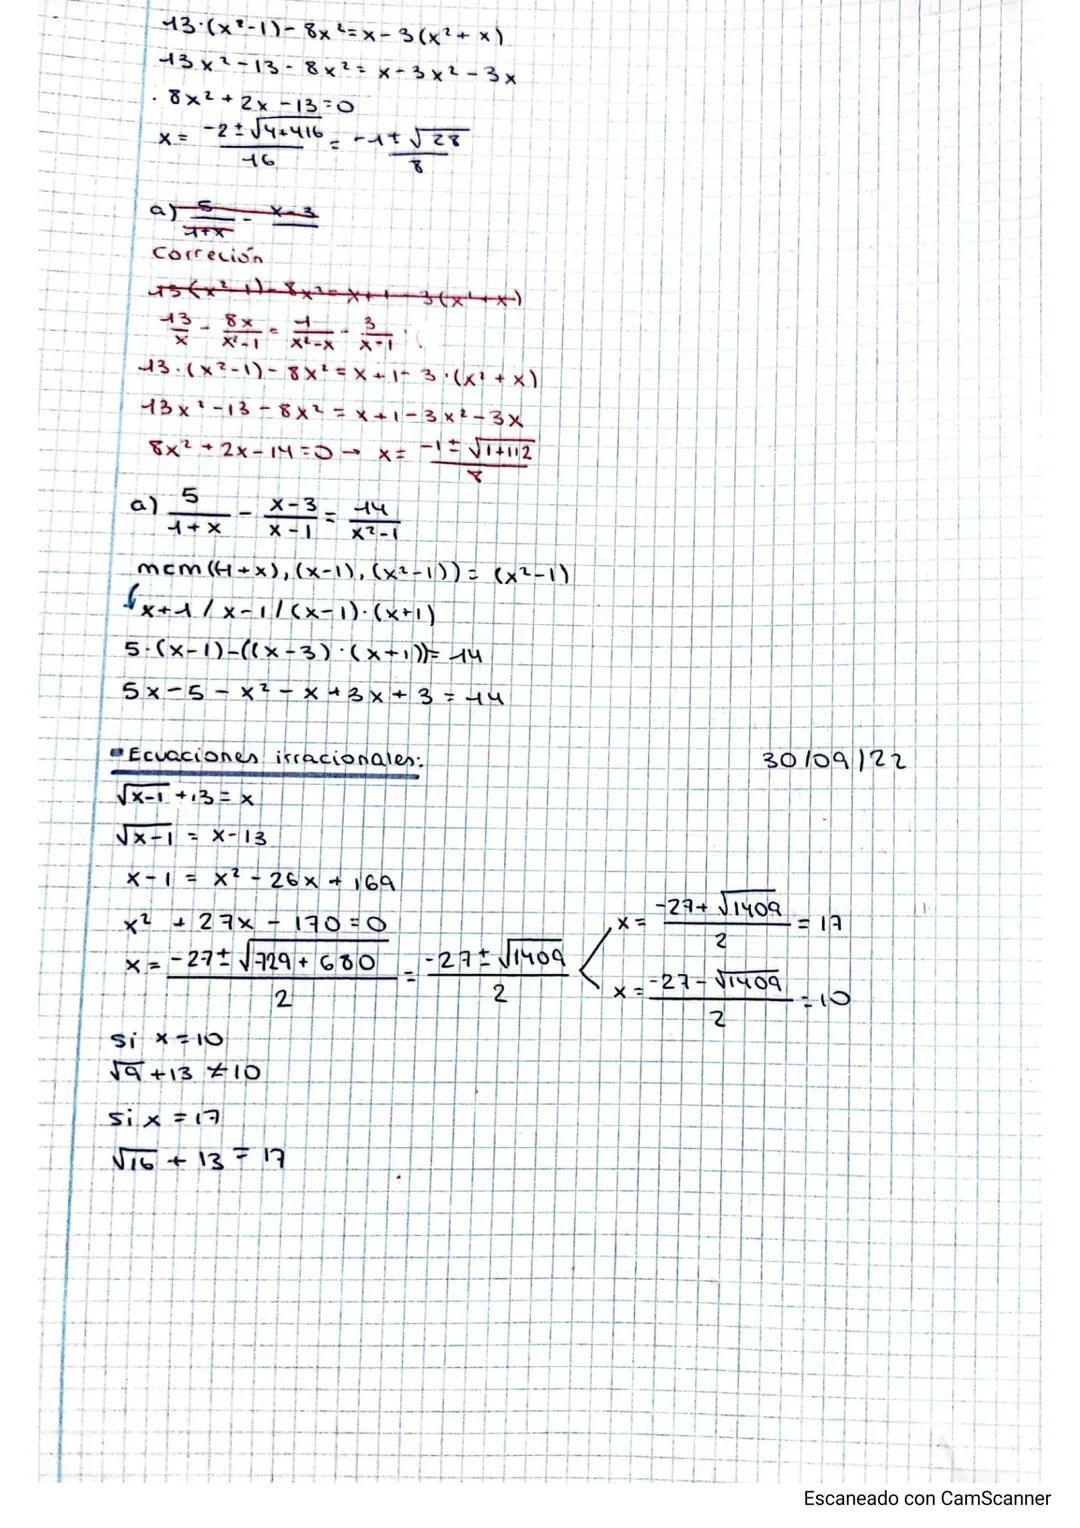 13·(x²-1)-8x²=x-3(x²+x)
13x²-13-8x²=x-3x²-3x
8x²+2x-13=0
x= (-2±√4+416)/16 = (-1±√28)/8
a) 5/(1+x) - x-3
Correción
13(x²-1)-8x²=x+1-3(x²+x)
13/x - 8x/(x²-1) = 1/(x²-x) - 3/(x-1)
13·(x²-1)-8x²=x+1-3·(x²+x)
13x²-13-8x²=x+1-3x²-3x
8x²+2x-14=0→ x= (-1±√1+112)/8
a) 5/(1+x) - (x-3)/(x-1) = 14/(x²-1)
mcm(1+x),(x-1),(x²-1))=(x²-1)
x+1/x-1/(x-1)·(x+1)
5·(x-1)-((x-3)·(x+1))=14
5x-5-x²-x+3x+3=14
Ecuaciones irracionales: 30/09/22
√x-1 +13=x
√x-1 = x-13
x-1 = x²-26x+169
x²+27x-170=0
x= (-27±√729+680)/2 = (-27±√1409)/2
x= (-27+√1409)/2 = 17
x= (-27-√1409)/2 = 10
si x=10
√9+13≠10
si x=17
√16+13=17
Escaneado con CamScanner